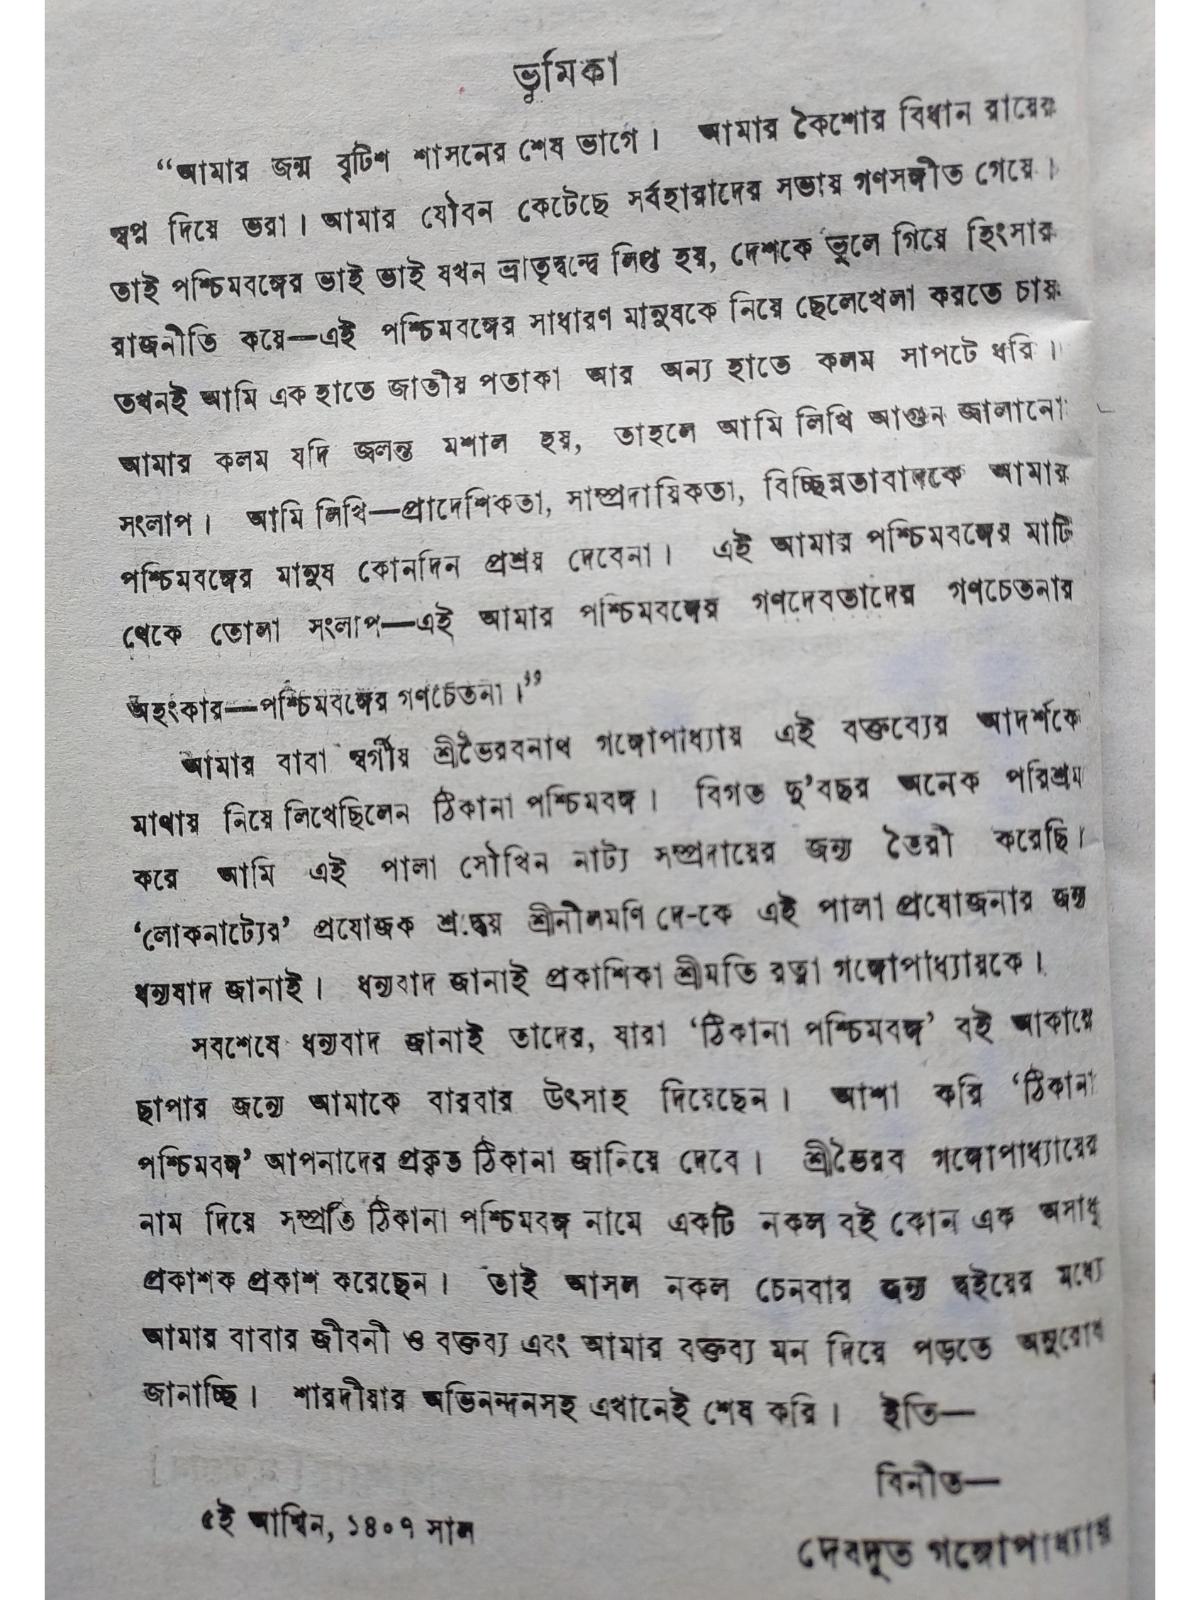 ভূমিকা
“আমার জন্ম বৃটিশ শাসনের শেষ ভাগে। আমার কৈশোর বিধান রায়ের
স্বপ্ন দিয়ে ভরা। আমার যৌবন কেটেছে সর্বহারাদের সভায় গণসঙ্গীত গেয়ে।
তাই পশ্চিমবঙ্গের ভাই ভাই যখন ভ্রাতৃদ্বন্দ্বে লিপ্ত হয়, দেশকে ভুলে গিয়ে হিংসার
রাজনীতি করে—এই পশ্চিমবঙ্গের সাধারণ মানুষকে নিয়ে ছেলেখেলা করতে চায়
তখনই আমি এক হাতে জাতীয় পতাকা আর অন্য হাতে কলম সাপটে ধরি।
আমার কলম যদি জ্বলন্ত মশাল হয়, তাহলে আমি লিখি আগুন জ্বালানো
সংলাপ। আমি লিখি—প্রাদেশিকতা, সাম্প্রদায়িকতা, বিচ্ছিন্নতাবাদকে আমার
পশ্চিমবঙ্গের মানুষ কোনদিন প্রশ্রয় দেবেনা। এই আমার পশ্চিমবঙ্গের মাটি
থেকে তোলা সংলাপ—এই আমার পশ্চিমবঙ্গের গণদেবতাদের গণচেতনার
অহংকার—পশ্চিমবঙ্গের গণচেতনা।”
আমার বাবা স্বর্গীয় শ্রীভৈরবনাথ গঙ্গোপাধ্যায় এই বক্তব্যের আদর্শকে
মাথায় নিয়ে লিখেছিলেন ঠিকানা পশ্চিমবঙ্গ। বিগত দু’বছর অনেক পরিশ্রম
করে আমি এই পালা সৌখিন নাট্য সম্প্রদায়ের জন্য তৈরী করেছি।
‘লোকনাট্যের’ প্রযোজক শ্রদ্ধেয় শ্রীনীলমণি দে-কে এই পালা প্রযোজনার জন্য
ধন্যবাদ জানাই। ধন্যবাদ জানাই প্রকাশিকা শ্রীমতি রত্না গঙ্গোপাধ্যায়কে।
সবশেষে ধন্যবাদ জানাই তাদের, যারা ‘ঠিকানা পশ্চিমবঙ্গ’ বই আকারে
ছাপার জন্যে আমাকে বারবার উৎসাহ দিয়েছেন। আশা করি ‘ঠিকানা
পশ্চিমবঙ্গ’ আপনাদের প্রকৃত ঠিকানা জানিয়ে দেবে। শ্রীভৈরব গঙ্গোপাধ্যায়ের
নাম দিয়ে সম্প্রতি ঠিকানা পশ্চিমবঙ্গ নামে একটি নকল বই কোন এক অসাধু
প্রকাশক প্রকাশ করেছেন। তাই আসল নকল চেনবার জন্য বইয়ের মধ্যে
আমার বাবার জীবনী ও বক্তব্য এবং আমার বক্তব্য মন দিয়ে পড়তে অনুরোধ
জানাচ্ছি। শারদীয়ার অভিনন্দনসহ এখানেই শেষ করি। ইতি—
বিনীত—
৫ই আশ্বিন, ১৪০৭ সাল
দেবদূত গঙ্গোপাধ্যায়